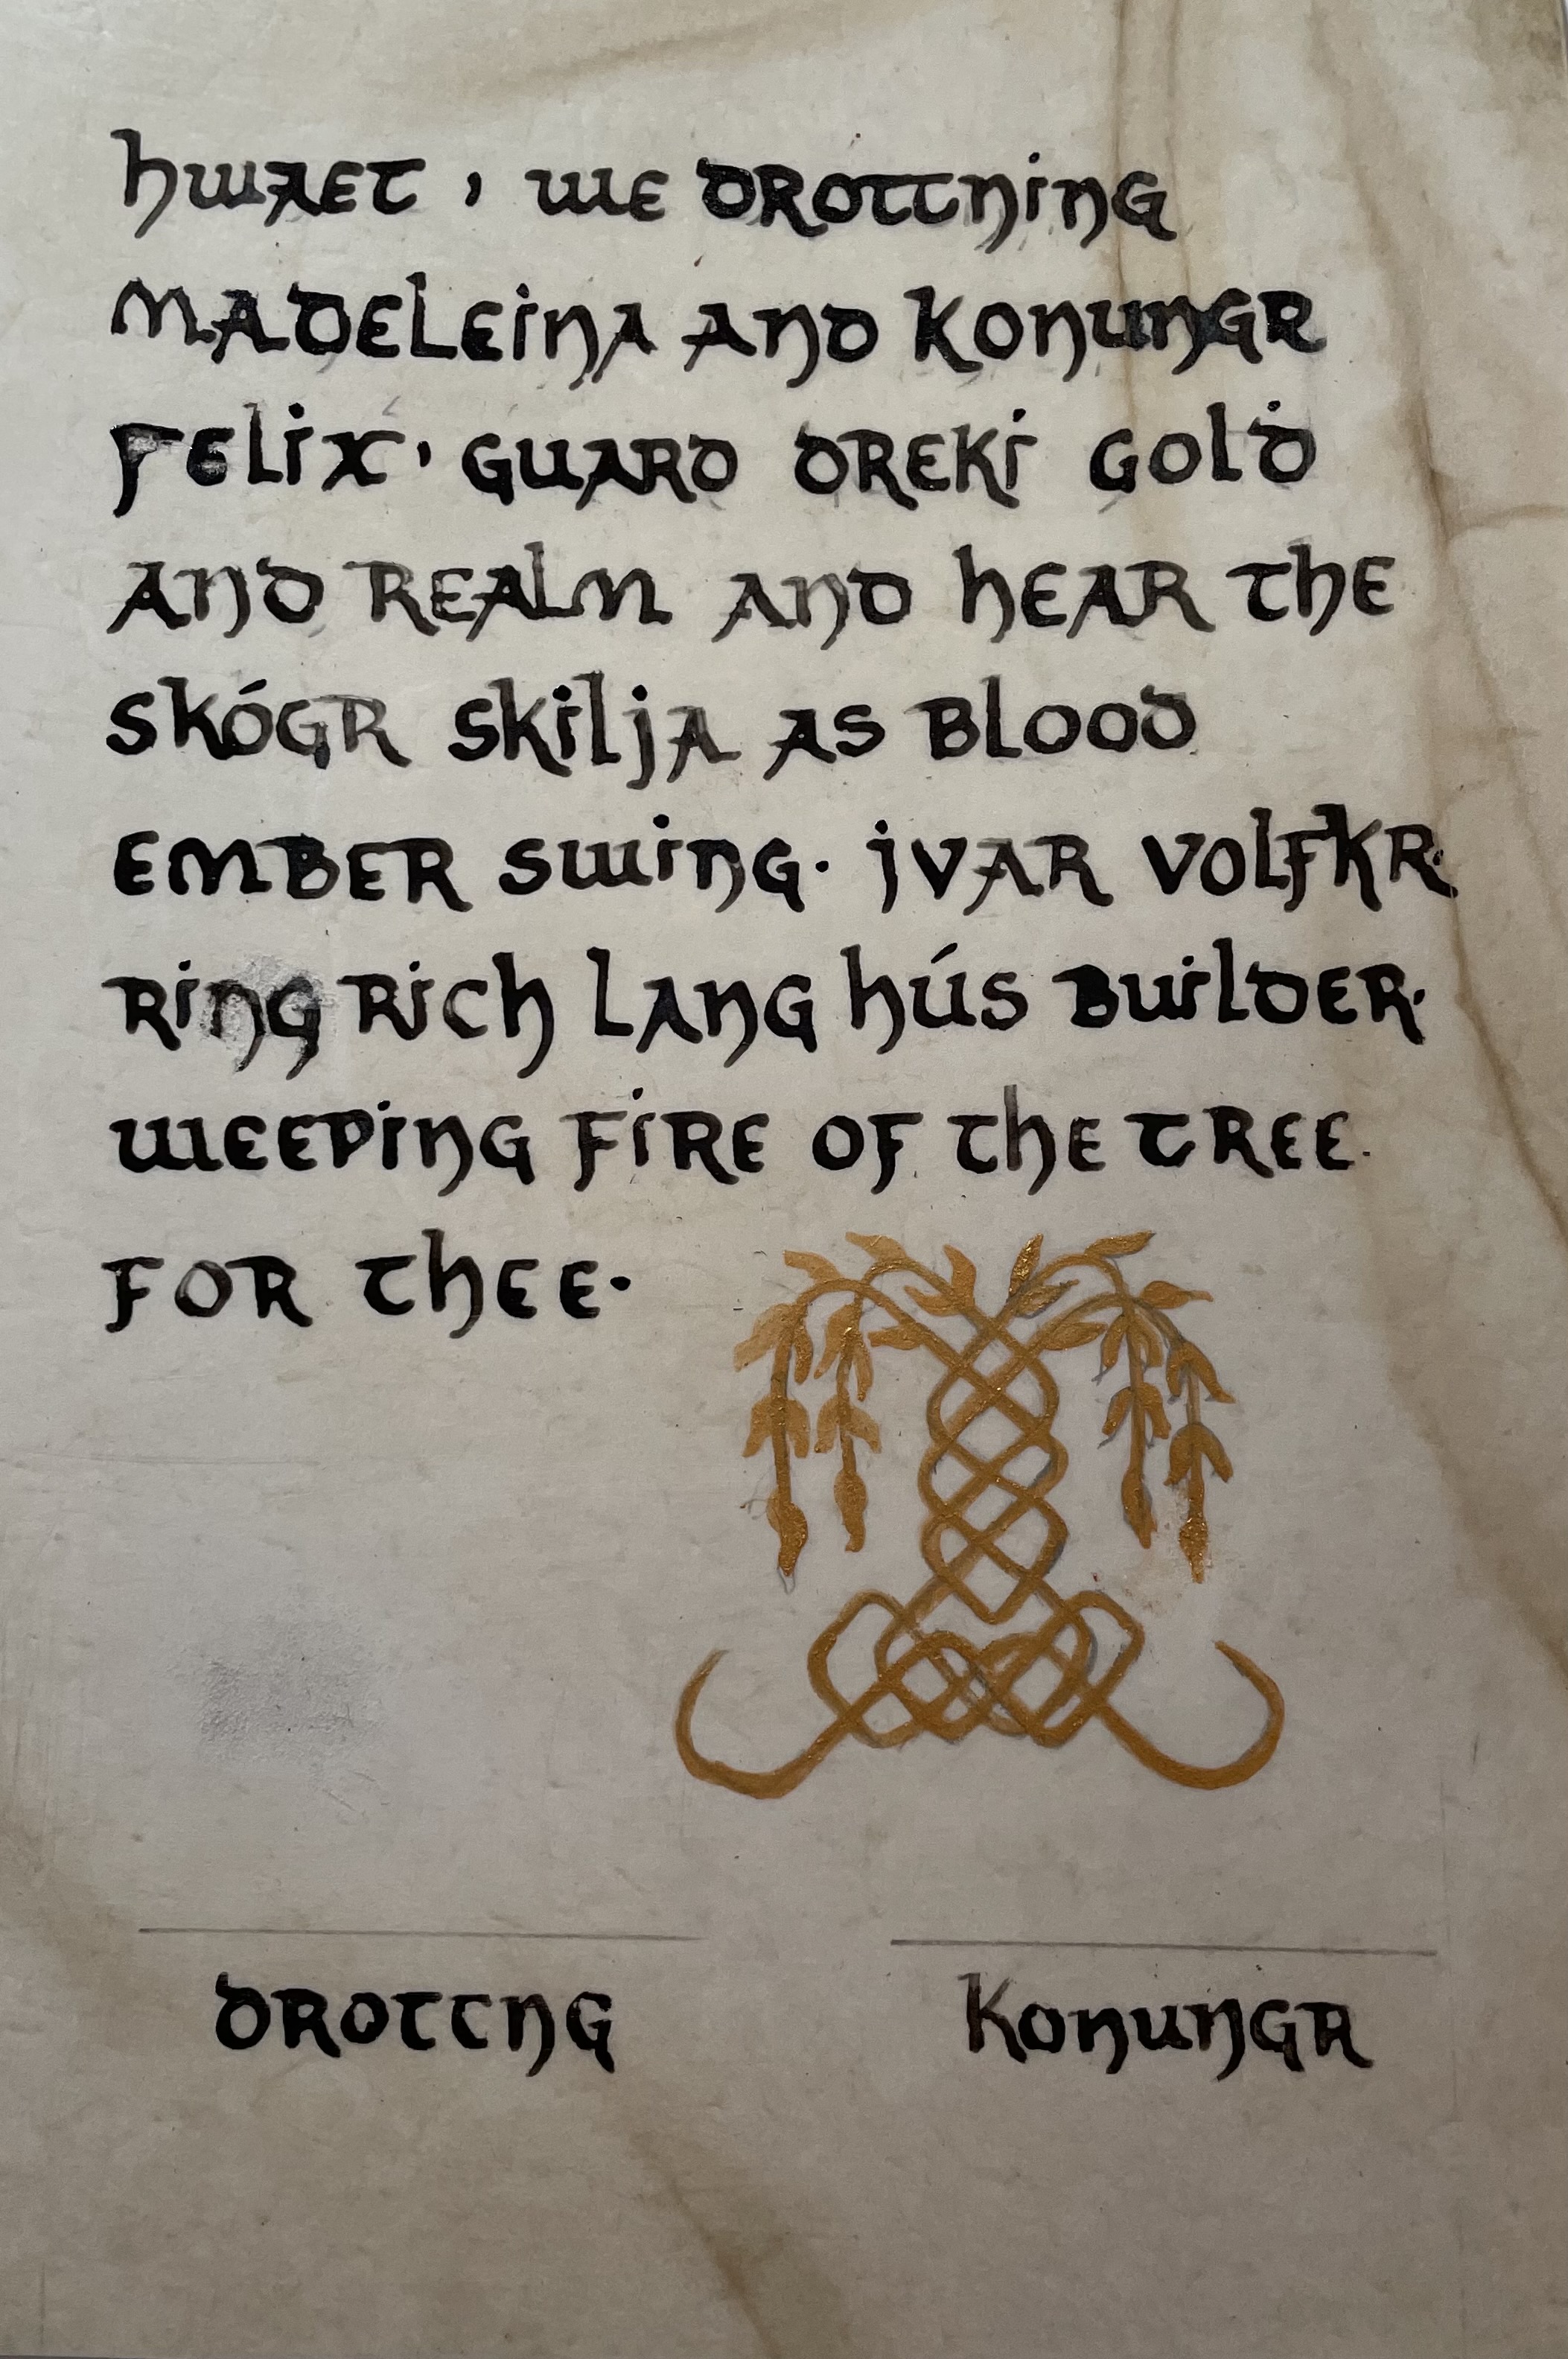 hwaet, we drottning
madeleina and konungr
felix, guard dreki gold
and realm and hear the
skógr skilja as blood
ember swing. jvar volfkr.
ring rich lang hús builder.
weeping fire of the tree.
for thee.
drottng
konungr